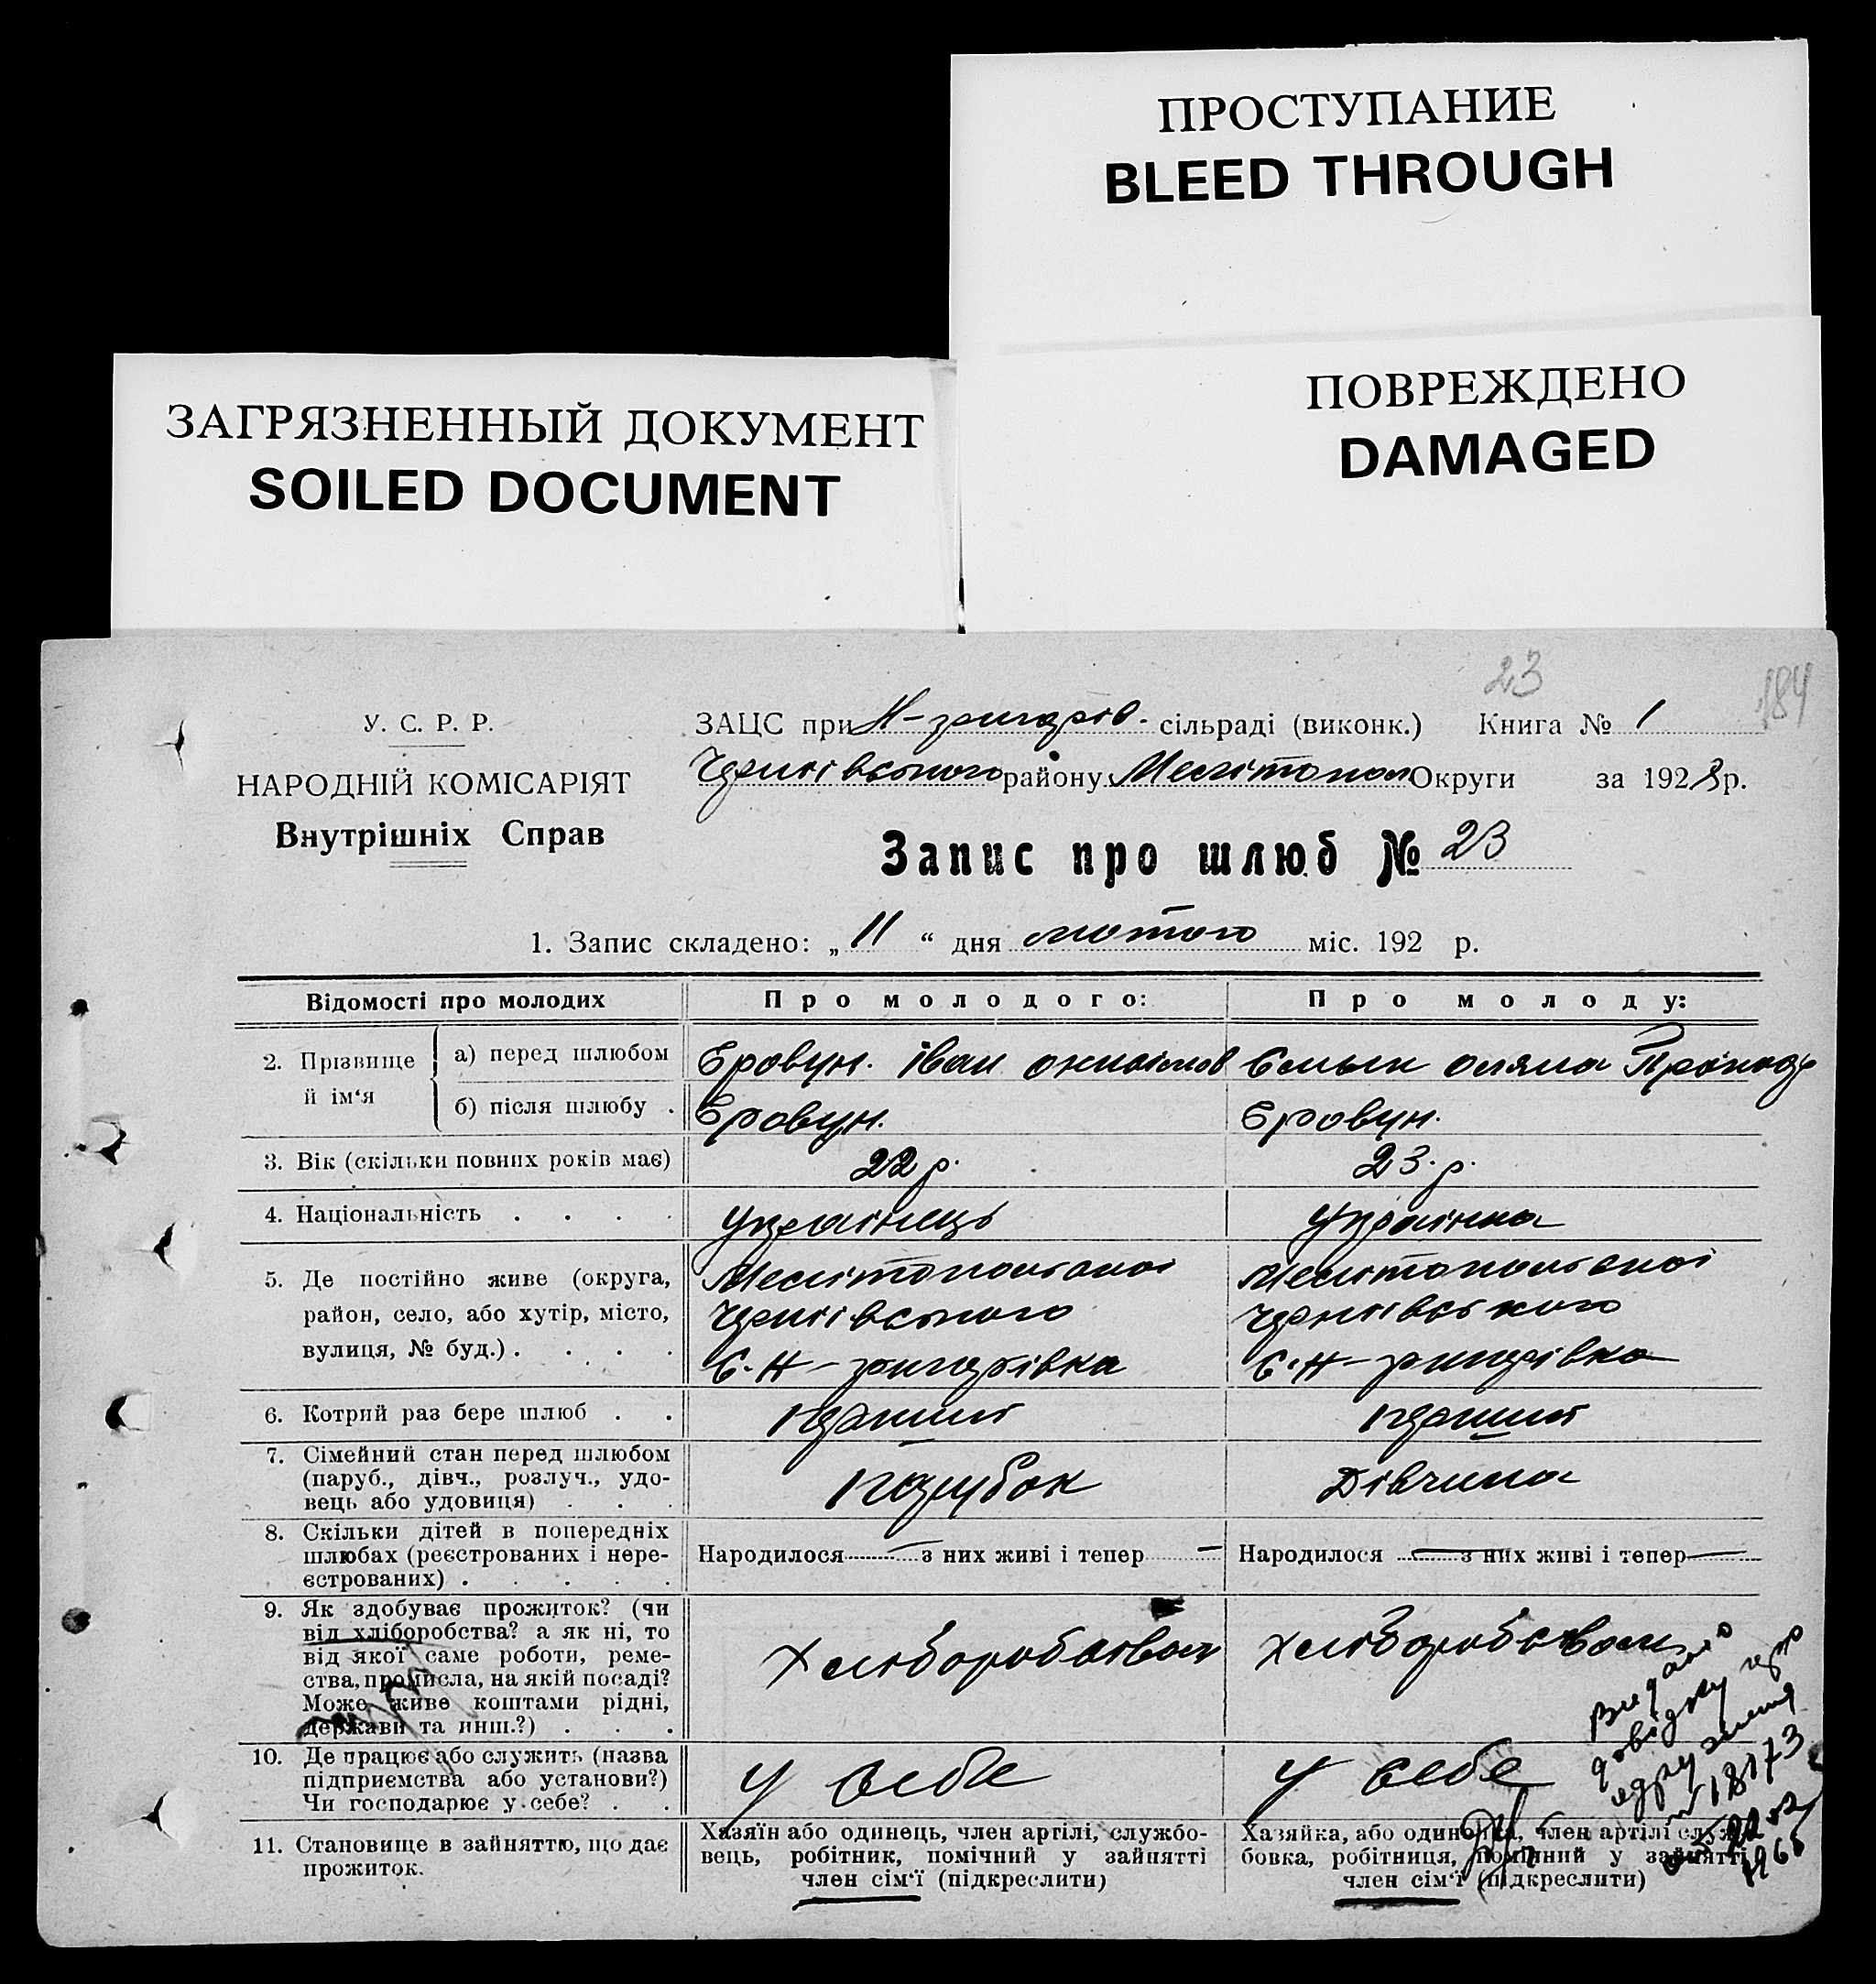 ПРОСТУПАНИЕ
BLEED THROUGH
ПОВРЕЖДЕНО
DAMAGED
ЗАГРЯЗНЕННЫЙ ДОКУМЕНТ
SOILED DOCUMENT
23
184
У. С. Р. Р.
НАРОДНІЙ КОМІСАРІЯТ
Внутрішніх Справ
ЗАЦС при сільраді (виконк.) Книга № 1
району Мелітопол Округи за 1928 р.
Запис про шлюб № 23
1. Запис складено: „ 11 “ дня лютого міс. 192 р.
Відомості про молодих Про молодого: Про молоду:
2. Прізвище й ім‘я
а) перед шлюбом Еровун. Іван
б) після шлюбу . Еровун. Еровун.
3. Вік (скільки повних років має) 22 р. 23. р.
4. Національність . . . . Українець Українка
5. Де постійно живе (округа, Мелітопольскої Мелітопольскої
район, село, або хутір, місто,
вулиця, № буд.) . . . . С. Н-григорівка С. Н-григорівка
6. Котрий раз бере шлюб . . перший перший
7. Сімейний стан перед шлюбом
(паруб., дівч., розлуч., удо-
вець або удовиця) . . . парубок Дівчина
8. Скільки дітей в попередніх
шлюбах (реєстрованих і нере-
єстрованих) . . . . .
Народилося — з них живі і тепер — Народилося — з них живі і тепер —
9. Як здобуває прожиток? (чи
від хліборобства? а як ні, то
від якої саме роботи, реме-
ства, промисла, на якій посаді?
Може живе коштами рідні,
держави та инш.?) . . .
10. Де працює або служить (назва
підприємства або установи?)
Чи господарює у себе? . .
у себе у себе
11. Становище в зайняттю, що дає
прожиток.
Хазяїн або одинець, член артілі, службо-
вець, робітник, помічний у зайнятті
член сім‘ї (підкреслити)
Хазяйка, або одиночка, член артілі службовка, робітниця, помічний у зайнятті
член сім‘ї (підкреслити)
Видано
довідку про